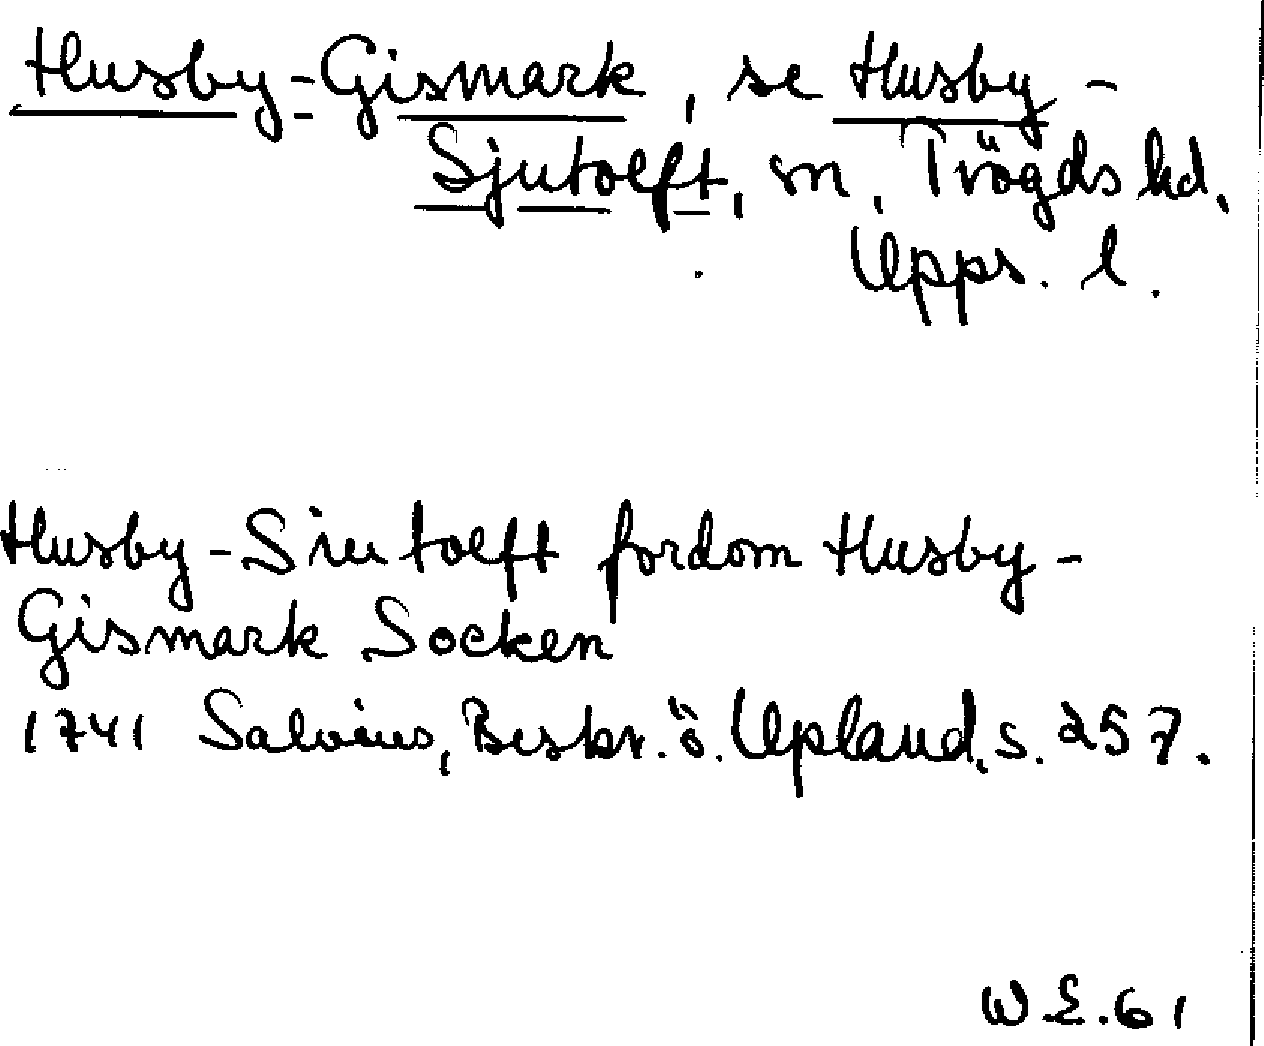 Husby-Gismark, se Husby-
Sjutolft, sn, Trögds hd,
Upps. l.
Husby-Siutolft fordom Husby-
Gismark Socken
1741 Salvius, Beskr. ö. Upland, s. 257.
W.E.61